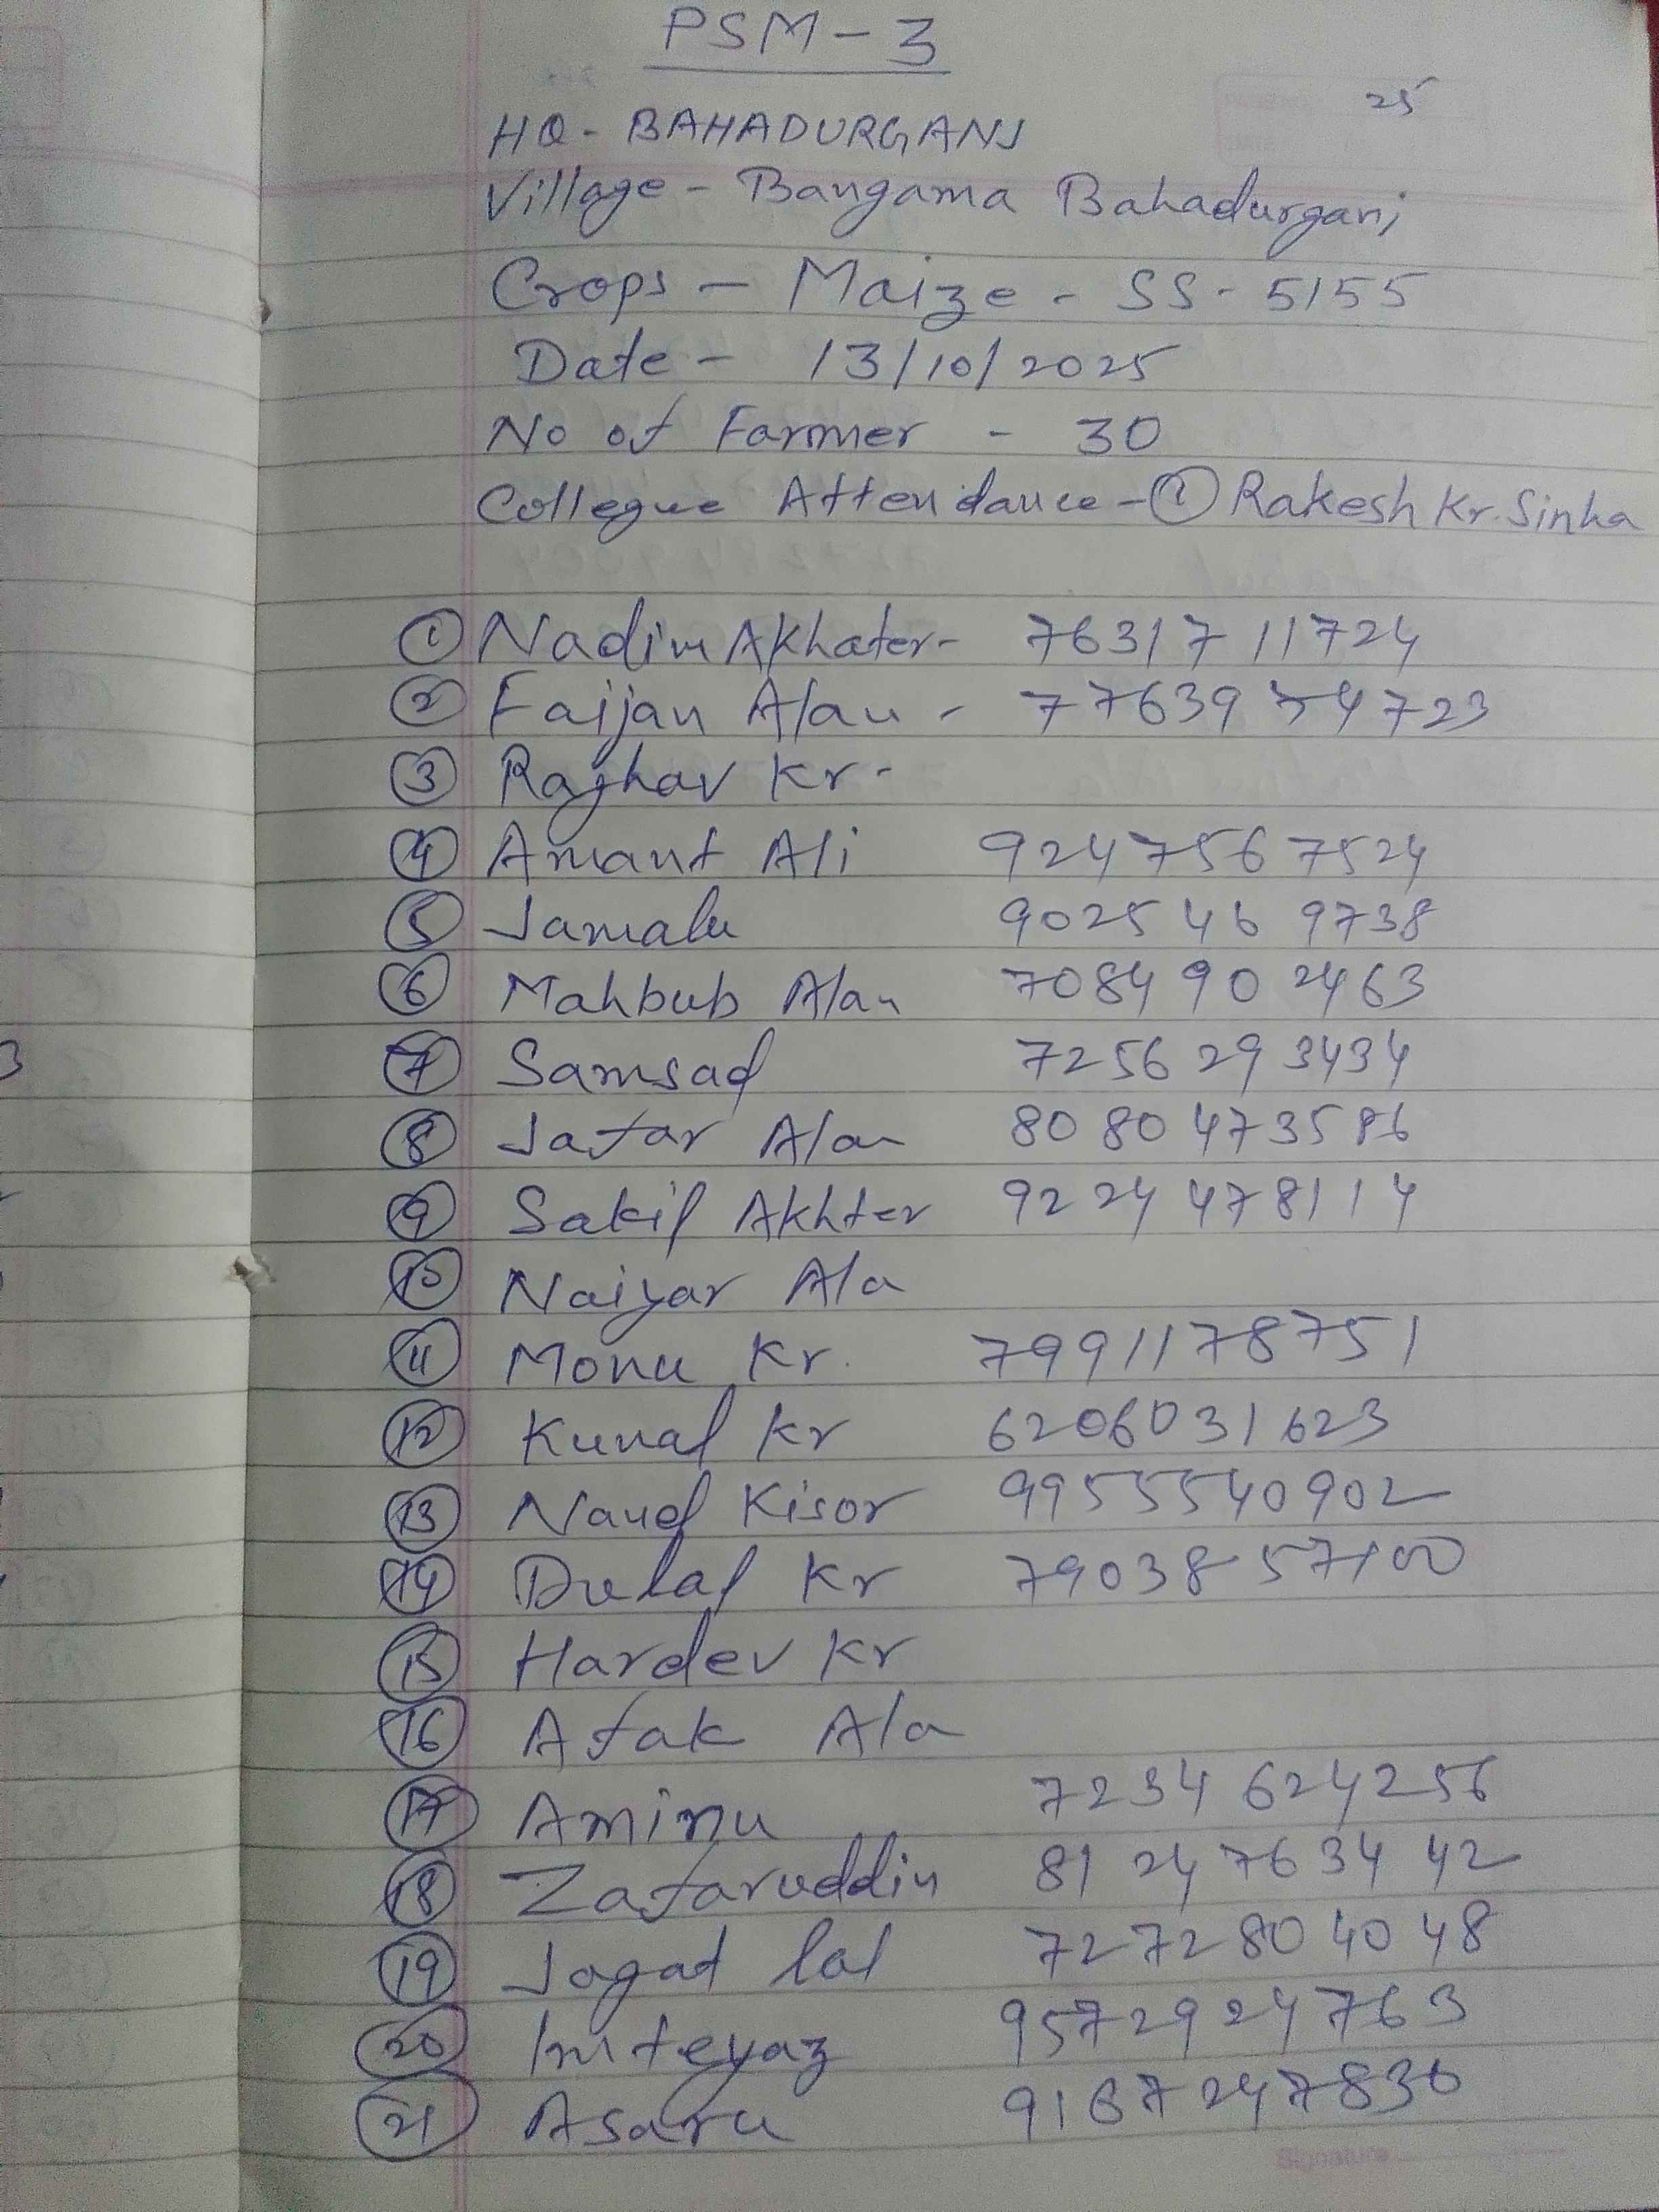 PSM - 3
25
HQ - BAHADURGANJ
Village - Bangama Bahadurganj
Crops - Maize - SS - 5155
Date - 13/10/2025
No of Farmer - 30
Collegue Attendance - ① Rakesh Kr. Sinha
① Nadim Akhater - 7631711724
② Faijan Alau - 7763954723
③ Raghav Kr -
④ Amant Ali 9247567524
⑤ Jamalu 9025469738
⑥ Mahbub Alan 7084902463
⑦ Samsad 7256293434
⑧ Jafar Alan 8080473586
⑨ Sakil Akhter 9224478114
⑩ Naiyar Ala
⑪ Monu Kr. 7991178751
⑫ Kunal Kr 6206031623
⑬ Nand Kisor 9955540902
⑭ Dulal Kr 7903857100
⑮ Hardev Kr
⑯ Afak Ala
⑰ Aminu 7234624256
⑱ Zafaruddin 8124763442
⑲ Jagat lal 7272804048
⑳ Imteyaz 9572924763
㉑ Asaru 9167247836
Signature